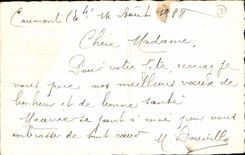 Caumont le 14 Août 1988
Chère Madame,
Pour votre fête, recevez je
vous prie nos meilleurs vœux de
bonheur et de bonne santé
se joint à moi pour vous
embrasser de tout cœur
M.